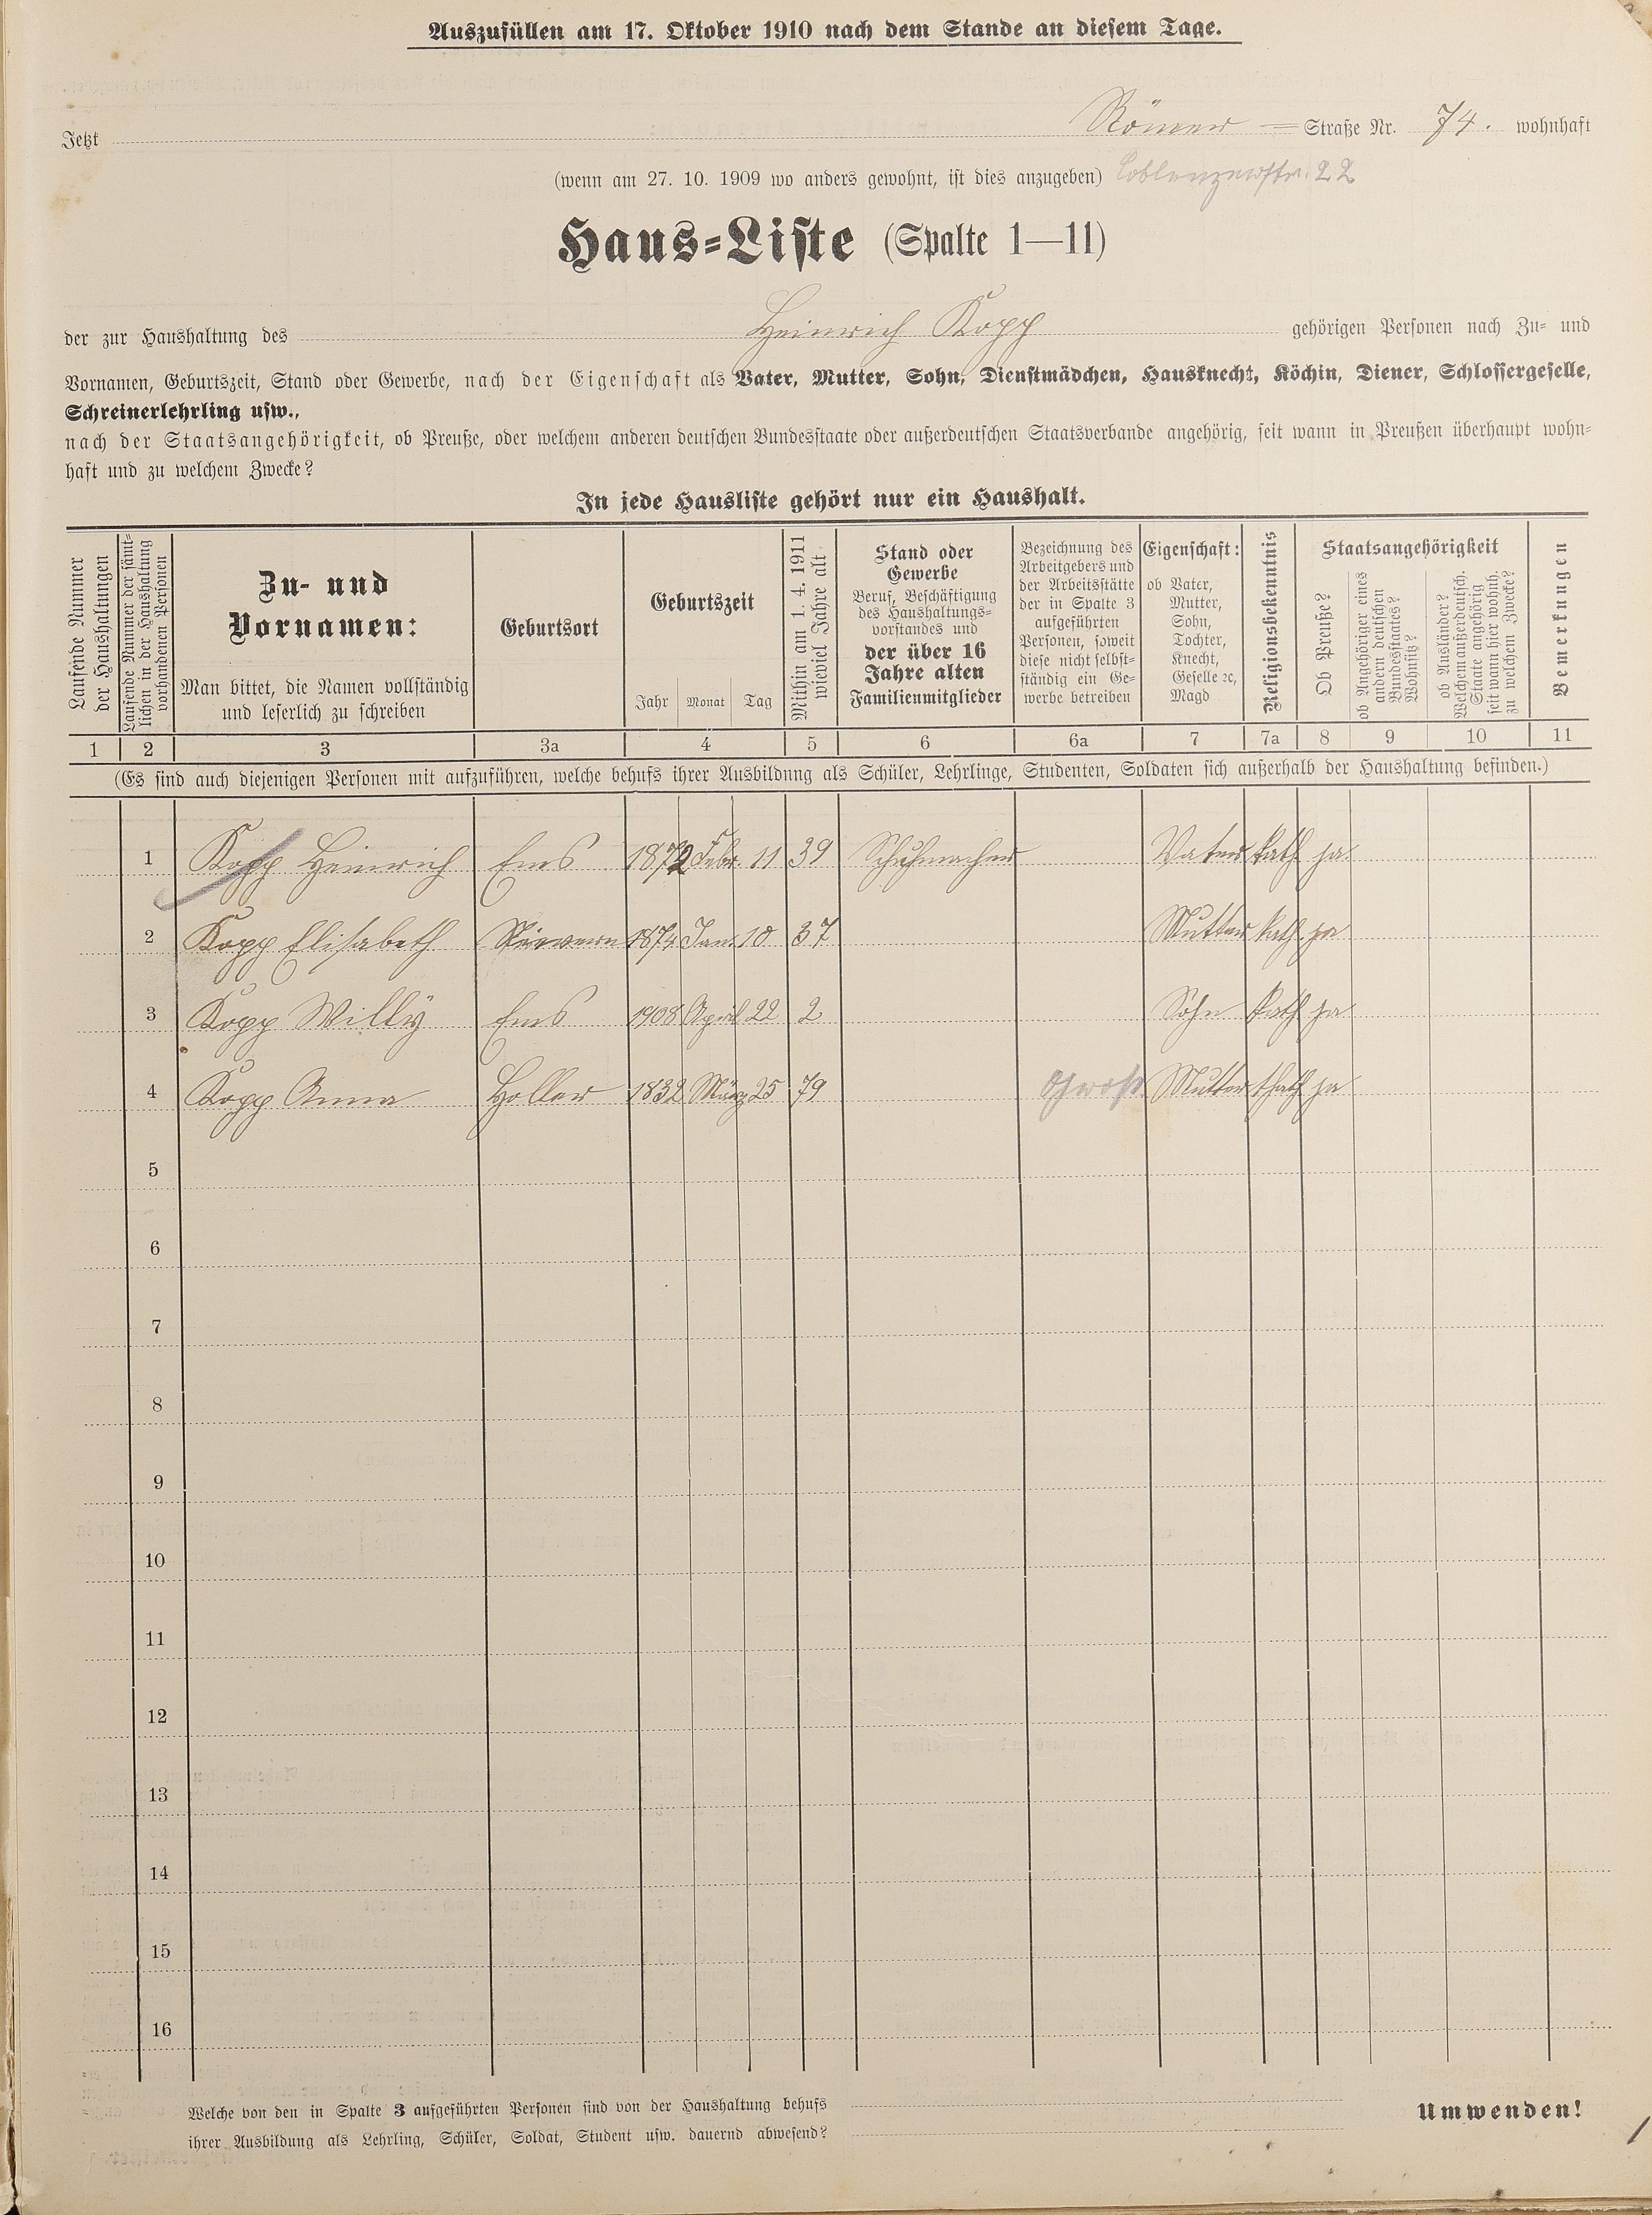 Auszufüllen am 17. Oktober 1910 nach dem Stande an diesem Tage.
Jetzt Römer = Straße Nr. 74. wohnhaft
(wenn am 27. 10. 1909 wo anders gewohnt, ist dies anzugeben) Coblenzerstr. 22
Haus=Liste (Spalte 1—11)
der zur Haushaltung des Heinrich Kopp gehörigen Personen nach Zu= und
Vornamen, Geburtszeit, Stand oder Gewerbe, nach der Eigenschaft als Vater, Mutter, Sohn, Dienstmädchen, Hausknecht, Köchin, Diener, Schlossergeselle,
Schreinerlehrling usw.,
nach der Staatsangehörigkeit, ob Preuße, oder welchem anderen deutschen Bundesstaate oder außerdeutschen Staatsverbande angehörig, seit wann in Preußen überhaupt wohn=
haft und zu welchem Zwecke?
In jede Hausliste gehört nur ein Haushalt.
Laufende Nummer
der Haushaltungen
Laufende Nummer der sämt=
lichen in der Haushaltung
vorhandenen Personen
Zu- und
Vornamen:
Man bittet, die Namen vollständig
und leserlich zu schreiben
Geburtsort
Geburtszeit
Jahr Monat Tag
Mithin am 1. 4. 1911
wieviel Jahre alt
Stand oder
Gewerbe
Beruf, Beschäftigung
des Haushaltungs=
vorstandes und
der über 16
Jahre alten
Familienmitglieder
Bezeichnung des
Arbeitgebers und
der Arbeitsstätte
der in Spalte 3
aufgeführten
Personen, soweit
diese nicht selbst=
ständig ein Ge=
werbe betreiben
Eigenschaft:
ob Vater,
Mutter,
Sohn,
Tochter,
Knecht,
Geselle ꝛc,
Magd
Religionsbekenntnis
Staatsangehörigkeit
Ob Preuße?
ob Angehöriger eines
andern deutschen
Bundesstaates?
Wohnsitz?
ob Ausländer?
Welchem außerdeutsch.
Staate angehörig
seit wann hier wohnh.
zu welchem Zwecke?
Bemerkungen
1 2 3 3a 4 5 6 6a 7 7a 8 9 10 11
(Es sind auch diejenigen Personen mit aufzuführen, welche behufs ihrer Ausbildung als Schüler, Lehrlinge, Studenten, Soldaten sich außerhalb der Haushaltung befinden.)
1 Kopp Heinrich Ems 1872 Febr. 11 39 Schuhmacher Vater kath ja.
2 Kopp Elisabeth 1874 Jan. 10 37 Mutter kath. ja
3 Kopp Willy Ems 1908 April 22 2 Sohn kath ja
4 Kopp Anna Holler 1832 März 25 79 Gross Mutter kath ja
5
6
7
8
9
10
11
12
13
14
15
16
Welche von den in Spalte 3 aufgeführten Personen sind von der Haushaltung behufs
ihrer Ausbildung als Lehrling, Schüler, Soldat, Student usw. dauernd abwesend?
Umwenden!